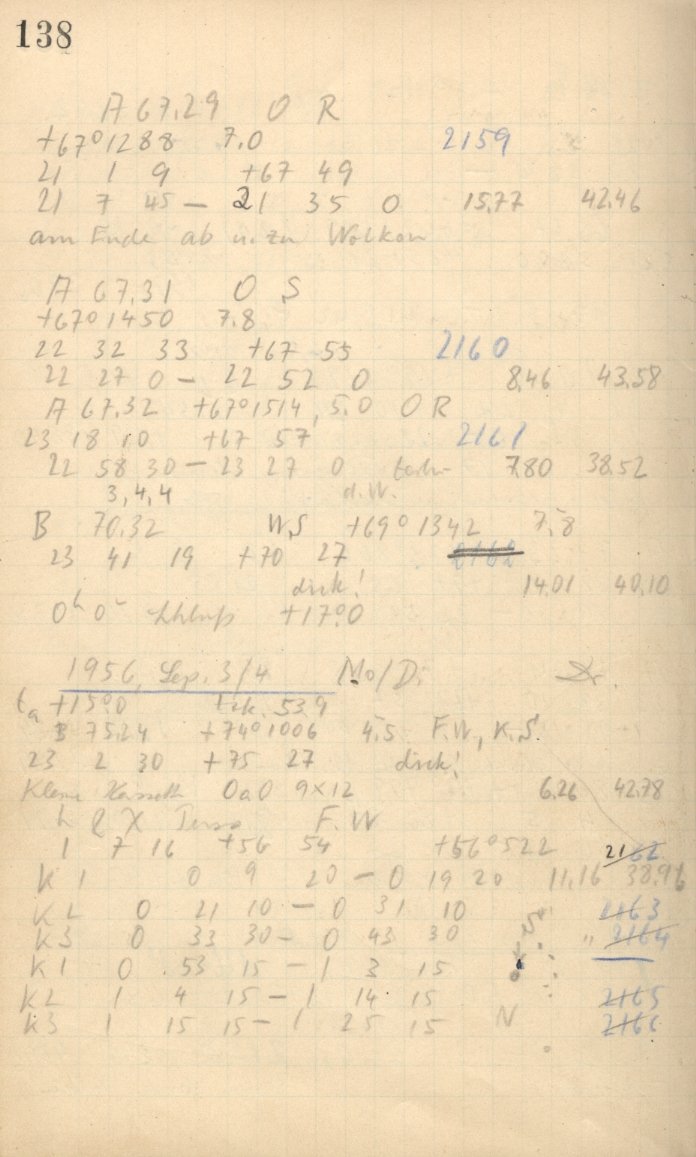 138
A 67.29 O R
+67° 1288 7.0 2159
21 1 9 +67 49
21 7 45 — 21 35 0 15.77 42.46
am Ende ab u. zu Wolken
A 67.31 O S
+67° 1450 7.8
22 32 33 +67 55 2160
22 27 0 — 22 52 0 8.46 43.58
A 67.32 +67° 1514, 5.0 O R
23 18 10 +67 57 2161
22 58 30 — 23 27 0 7.80 38.52
3, 4, 4 d.W.
B 70.32 W.S +69° 1342 7.8
23 41 19 +70 27 2162
dick! 14.01 40.10
0h 0m Schluss +17°0
1956, Sep. 3/4 Mo/Di Dr.
ta +15°0 tik. 53.9
B 75.24 +74° 1006 4.5 F.W., K.S.
23 2 30 +75 27 dick!
Kleine Kassette OaO 9×12 6.26 42.78
h & χ F.W
1 7 16 +56 54 +56° 522 2162
K 1 0 9 20 — 0 19 20 11.16 38.96
K 2 0 21 10 — 0 31 10 2163
K 3 0 33 30 — 0 43 30 " 2164
K 1 0 53 15 — 1 3 15
K 2 1 4 15 — 1 14 15 2165
K 3 1 15 15 — 1 25 15 N 2166